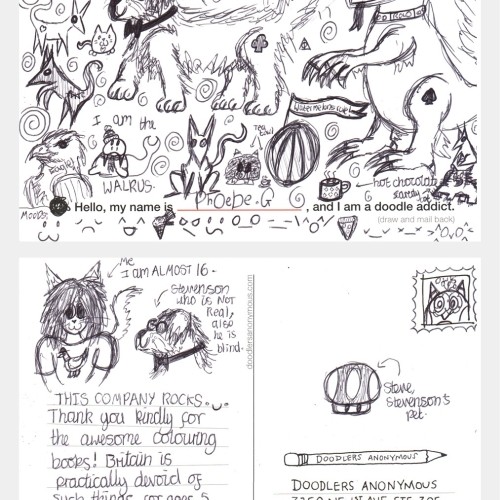 Watermelons rule!
I am the
WALRUS.
Tea owl
hot chocolate
Hello, my name is Phoebe.G, and I am a doodle addict.
(draw and mail back)
MOODS:
Me
I am ALMOST 16.
Stevenson
who is NOT
Real,
also
he is
blind.
doodlersanonymous.com
THIS COMPANY ROCKS.
Thank you kindly for
the awesome colouring
books! Britain is
practically devoid of
such things for ages 5
Steve,
Stevenson's
pet.
DOODLERS ANONYMOUS
DOODLERS ANONYMOUS